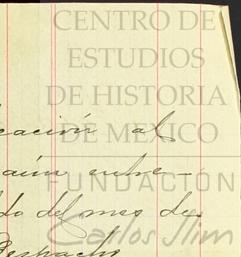 CENTRO DE
ESTUDIOS
DE HISTORIA
DE MEXICO
FUNDACIÓN
Carlos Slim
cación al
aún entre-
do del mes de
Despacho